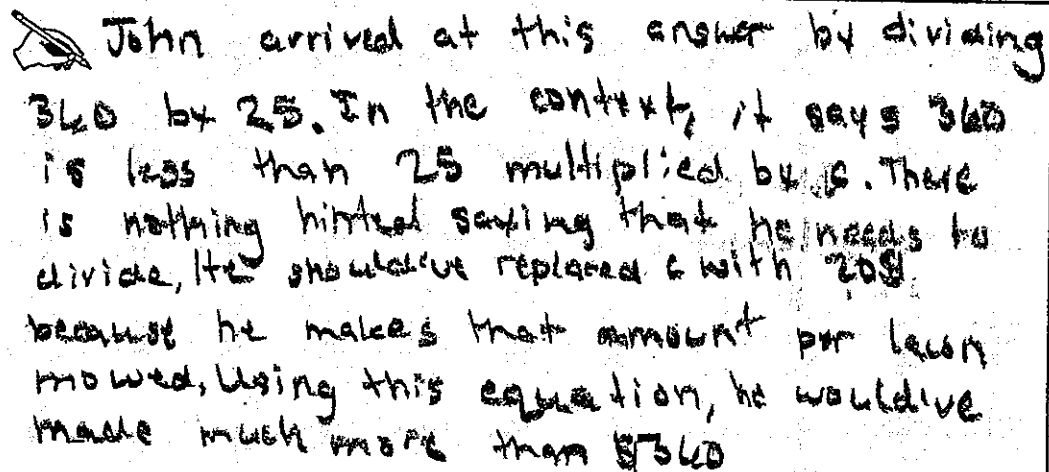 John arrived at this answer by dividing
360 by 25. In the context, it says 360
is less than 25 multiplied by c. There
is nothing hinted saying that he needs to
divide, He should've replaced c with 20$
because he makes that ammount per lawn
mowed, Using this equation, he would've
made much more than $360